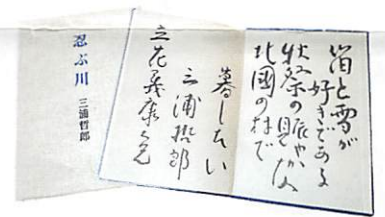 忍ぶ川
三浦哲郎
笛と雪が
好きである
秋祭の賑やかな
北國の村で
暮したい
三浦哲郎
立花義康兄